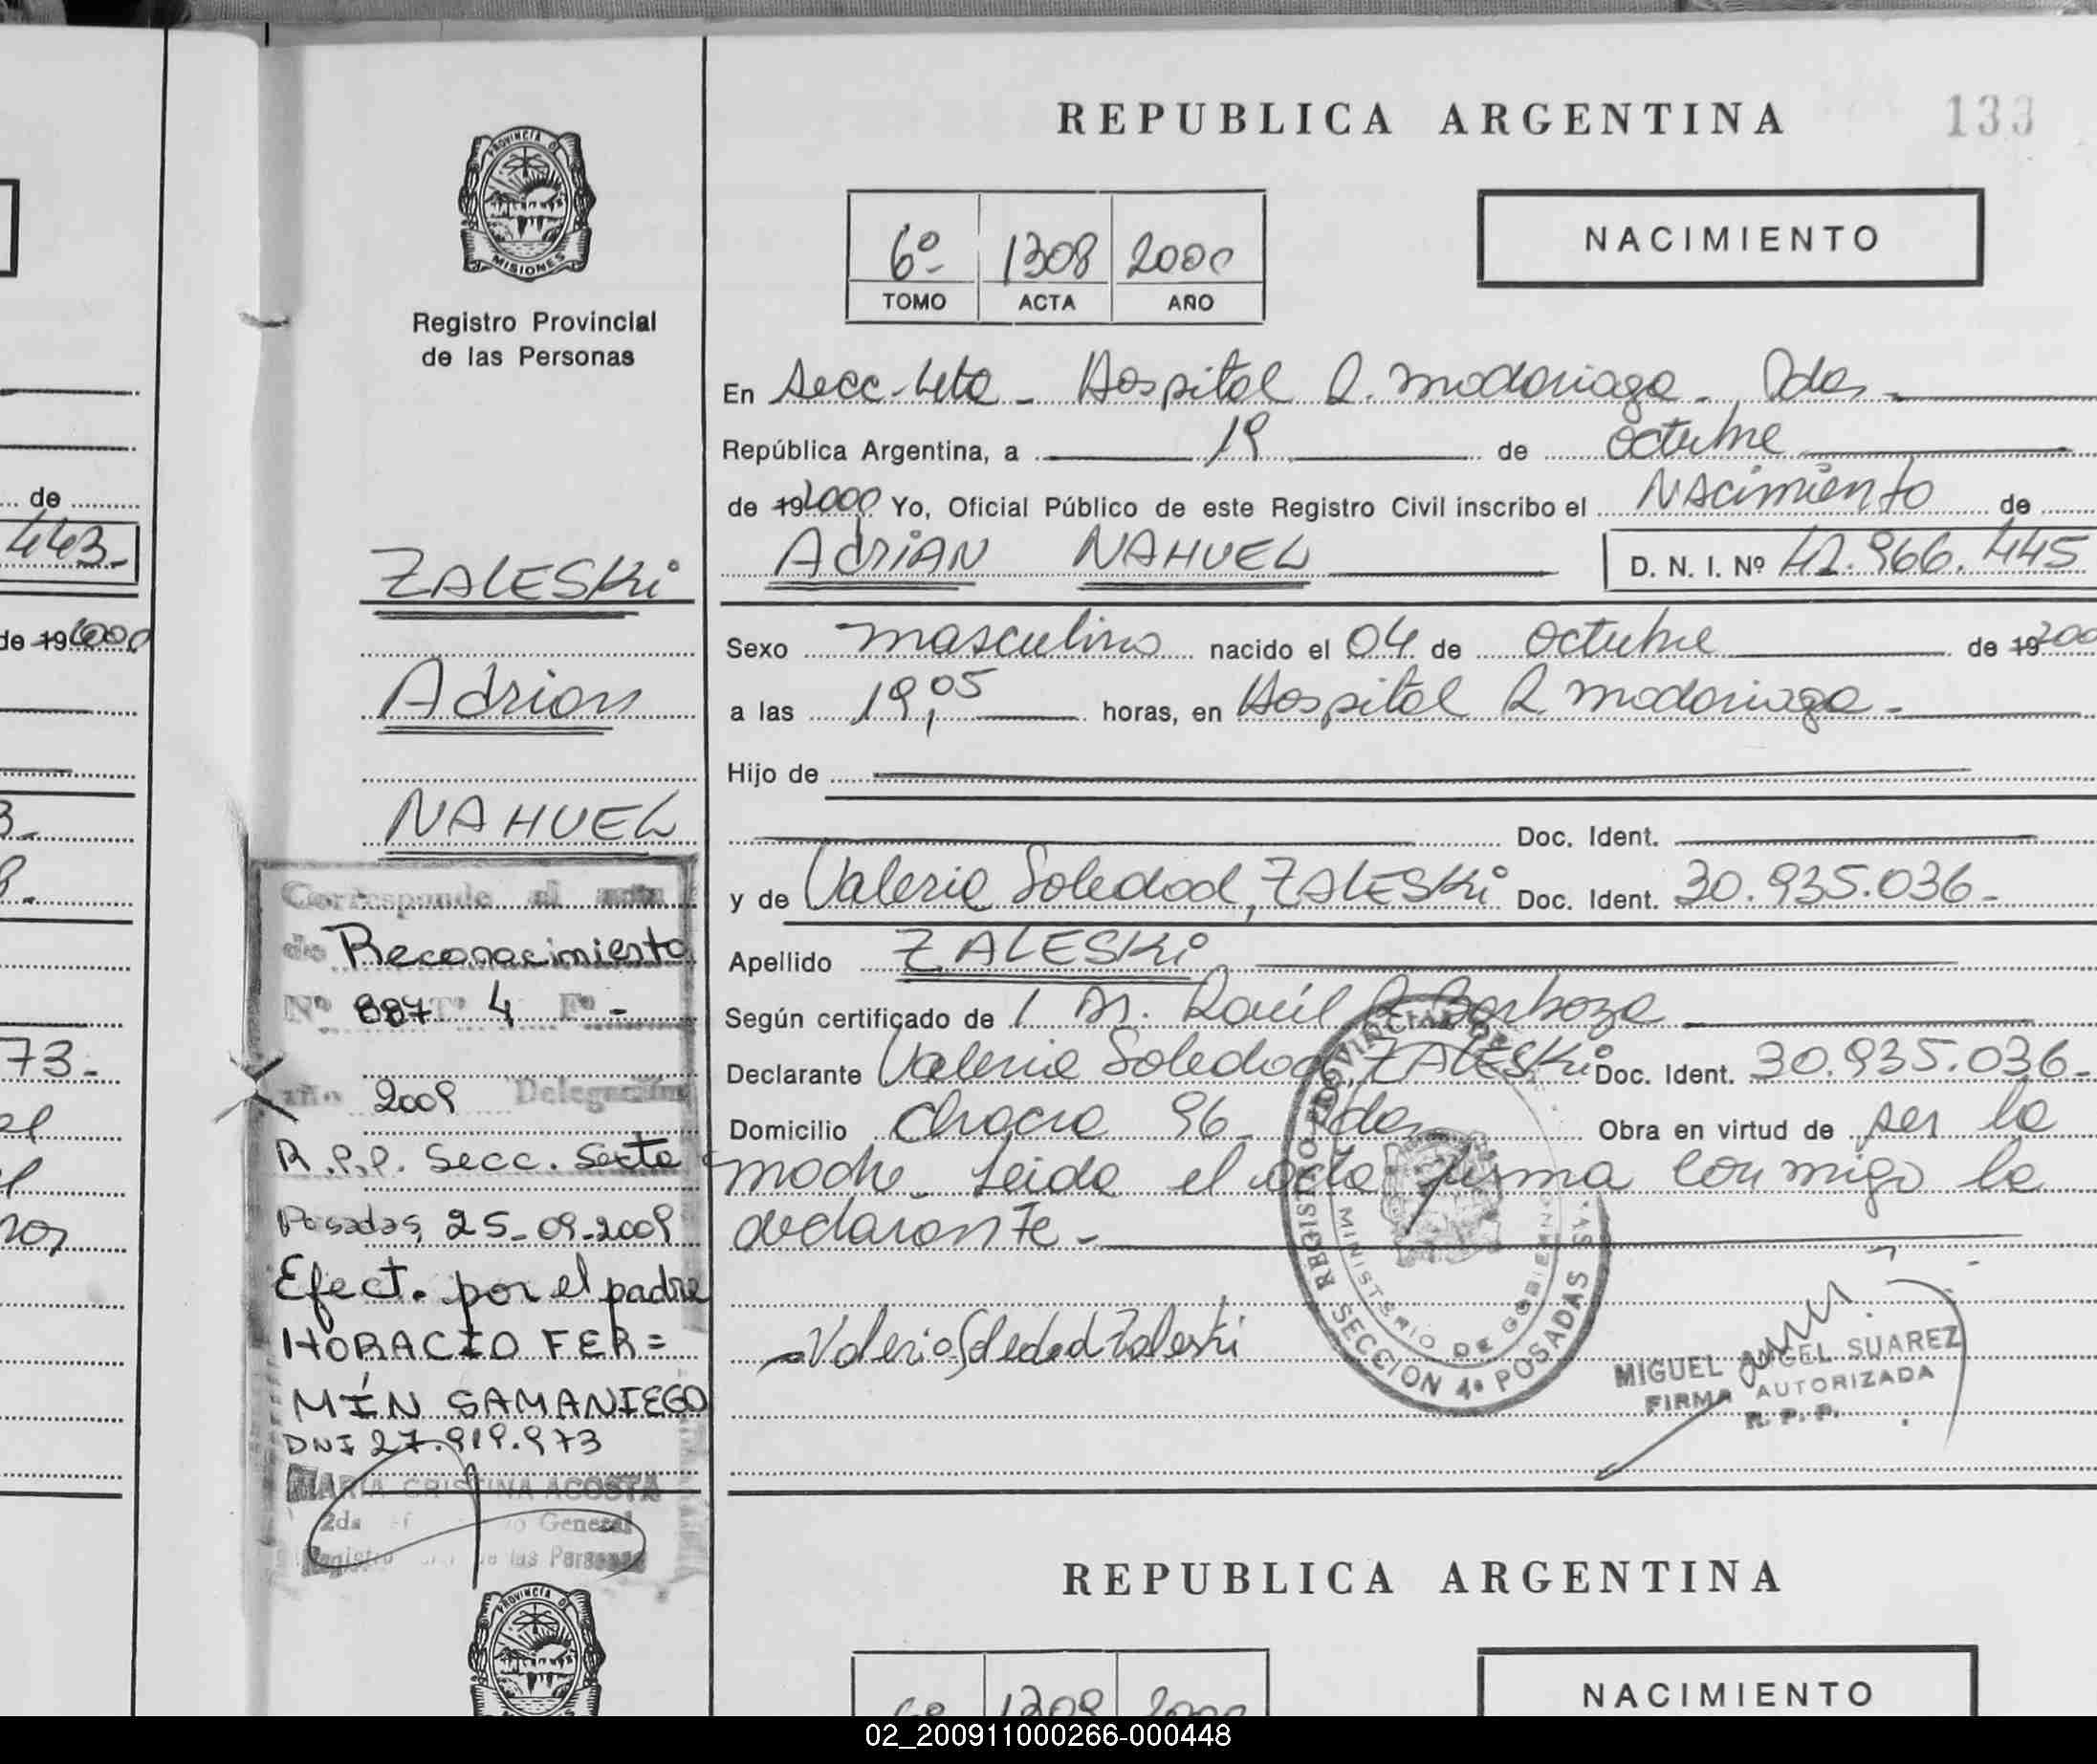 REPUBLICA ARGENTINA
133
PROVINCIA DE
MISIONES
Registro Provincial
de las Personas
6º 1308 2000
TOMO ACTA AÑO
NACIMIENTO
En Secc. 4ta - Hospital R. Madariaga - Pdas -
República Argentina, a 19 de octubre
de 19 2000 Yo, Oficial Público de este Registro Civil inscribo el Nacimiento de
Adrian NAHUEL D. N. I. Nº 42.966.445
Sexo masculino nacido el 04 de octubre de 19 200
a las 19,05 horas, en Hospital R Madariaga -
Hijo de
Doc. Ident.
y de Valeria Soledad, ZALESKi Doc. Ident. 30.935.036-
Apellido ZALESKi
Según certificado de / Dr. Raúl Barboza
Declarante Valeria Soledad, ZALESKi Doc. Ident. 30.935.036-
Domicilio Chacra 96 - Pdas Obra en virtud de ser la
madre. Leida el acta firma conmigo la
declarante -
Valeria Soledad Zaleski
REGISTRO PROVINCIAL DE
MINISTERIO DE GOBIERNO
SECCION 4ª POSADAS
MIGUEL ANGEL SUAREZ
FIRMA AUTORIZADA
R. P. P.
ZALESKi
Adrian
NAHUEL
Corresponde al acta
de Reconocimiento
Nº 887 Tº 4 Fº -
año 2009 Delegación
R.P.P. Secc. Sexta
Posadas, 25-09-2009
Efect. por el padre
HORACIO FER=
MÍN SAMANIEGO
DNI 27.919.973
MARIA CRISTINA ACOSTA
2da General
Registro de las Personas
de
443-
de 19 2000
73-
PROVINCIA DE
REPUBLICA ARGENTINA
6º 1309 2000
NACIMIENTO
02_200911000266-000448